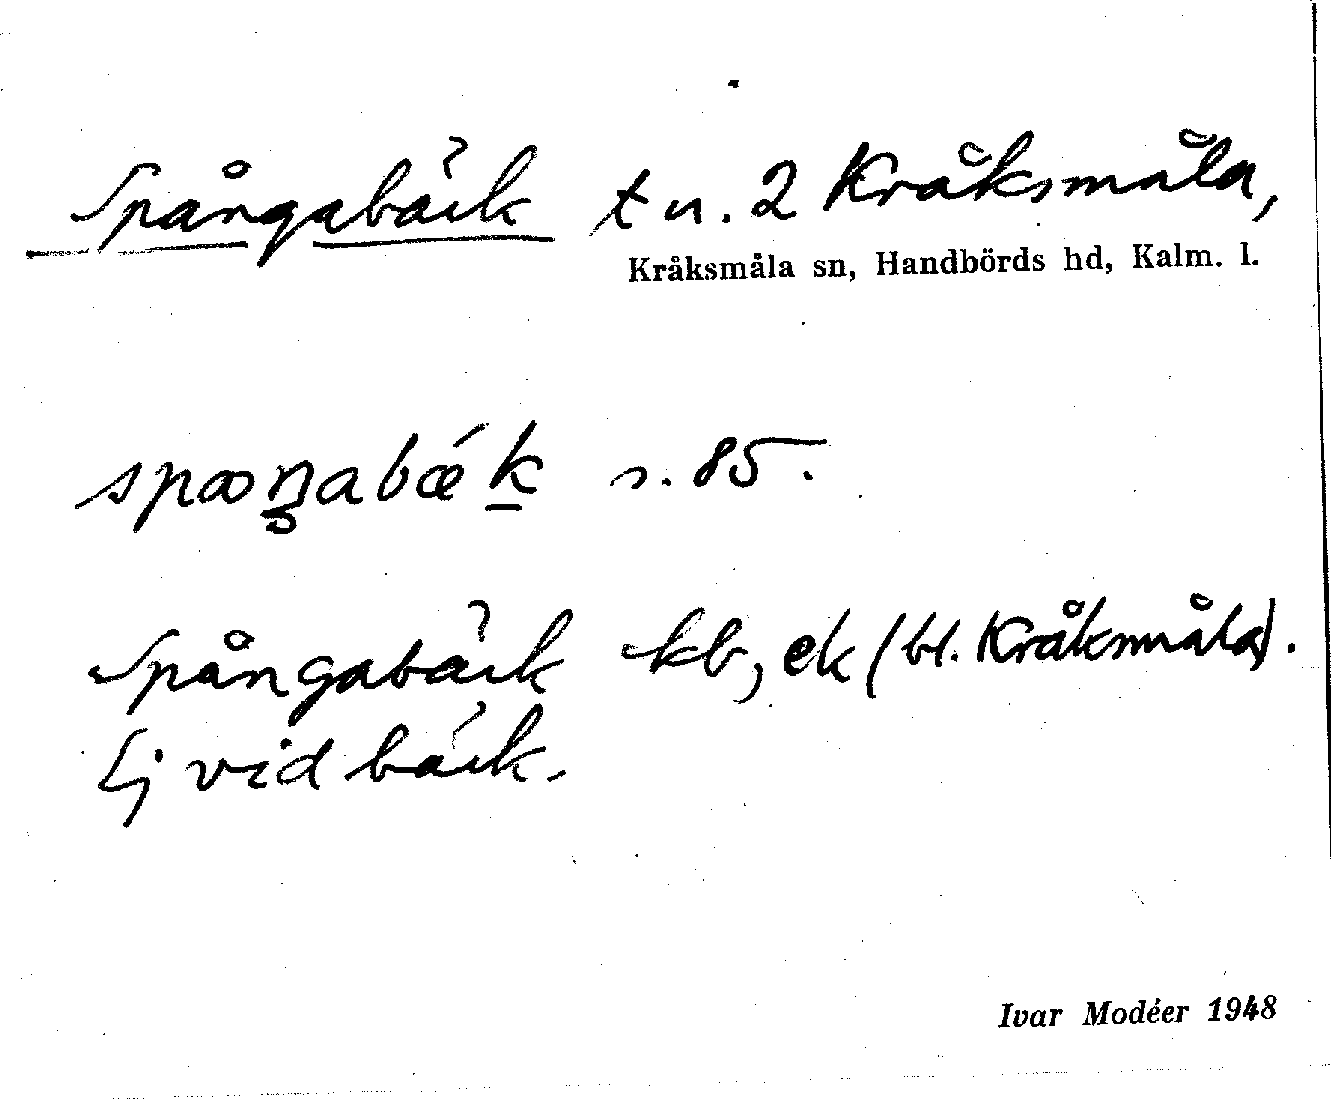 Spångabäck t n. 2 Kråksmåla,
Kråksmåla sn, Handbörds hd, Kalm. l.
s. 85.
Spångabäck kb, ek (bl. Kråksmåla).
Ej vid bäck.
Ivar Modéer 1948